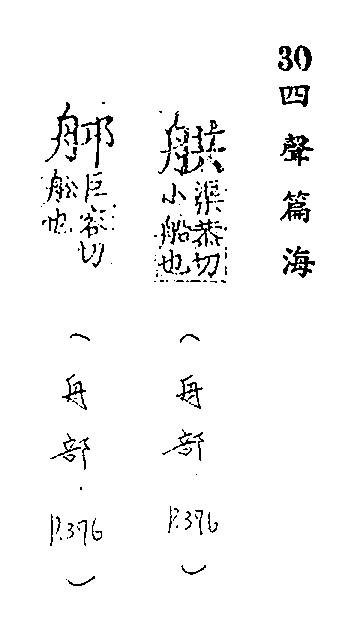 30四聲篇海
舼渠恭切
小船也
(舟部.P.396)
䑪巨容切
舩也
(舟部.P.396)